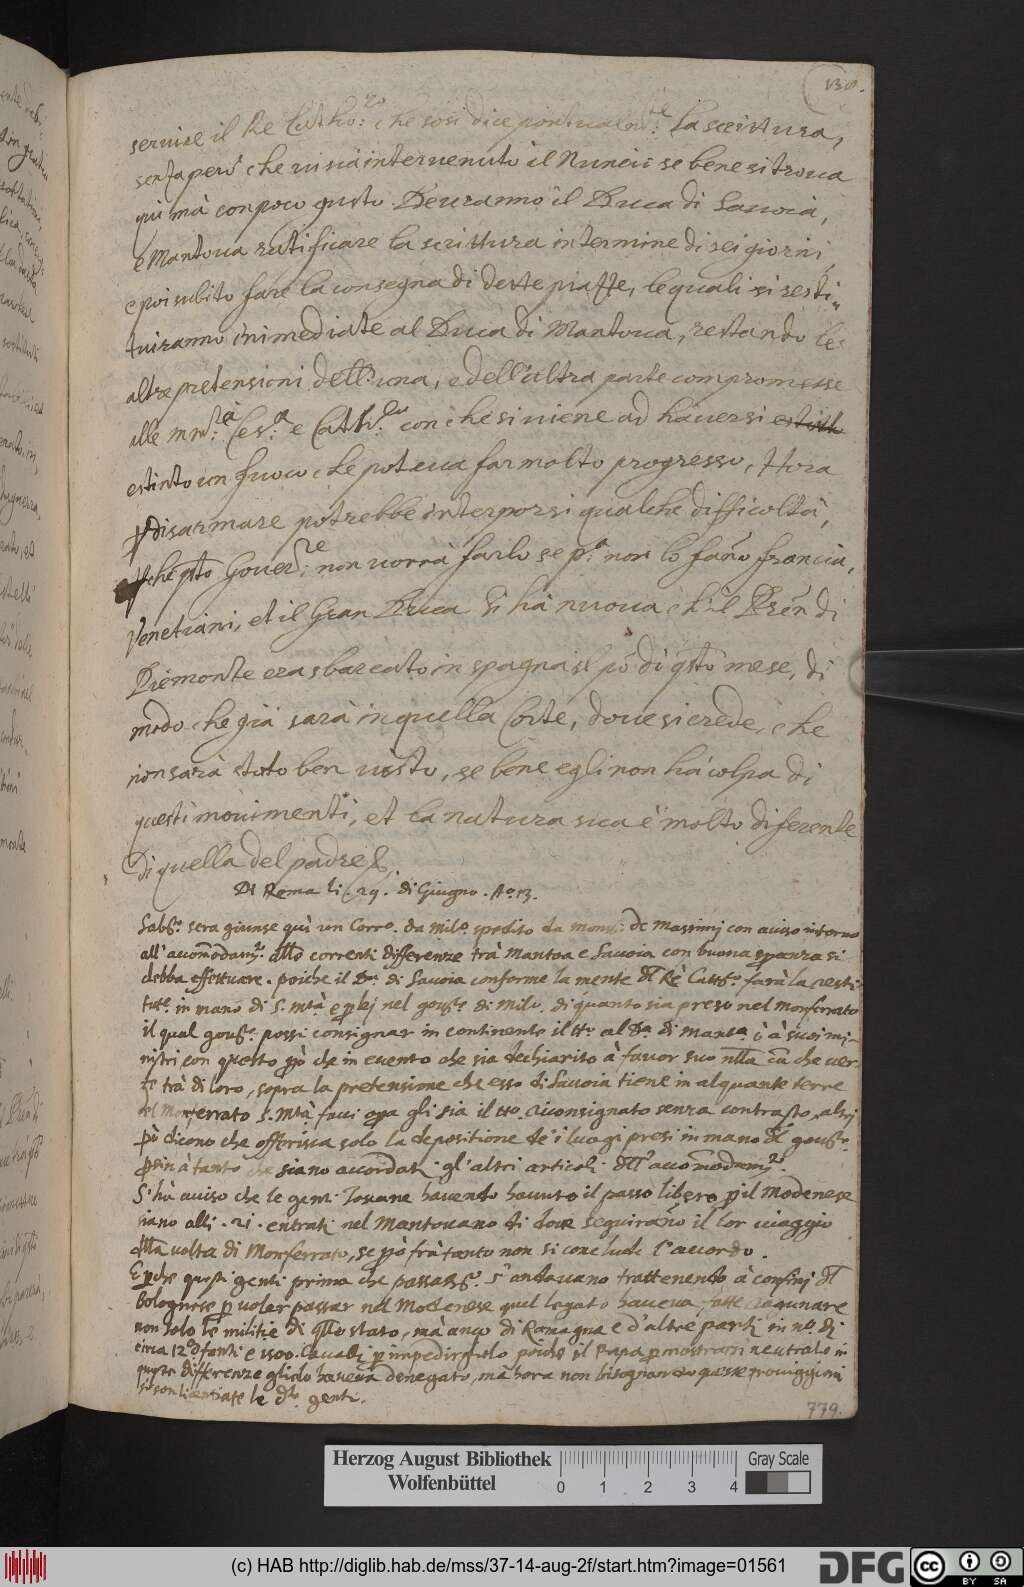 130.
servire il Re Catho:co che cosi dice pontualmte: la scrittura,
senza però che vi sia intervenuto il Nuncio se bene si trova
quì mà con poco gusto. Devranno il Duca di Savoia,
e Mantova ratificare la scrittura in termine di sei giorni,
e poi subito fare la consegna di dette piazze, le quali si resti-
tuiranno inmediate al Duca di Mantova, restando le
altre pretensioni dell'una, e dell'altra parte compromesse
alle Mtà: Ces:a e Cath:ca con che si viene ad haversi
estinto un fuoco che poteva far molto progresso, Hora
p disarmare potrebbe interporsi qualche difficoltà,
pche qsto Gover:re non vorrà farlo se p:a non lo fano Francia,
Venetiani, et il Gran Duca Si hà nuova ch'il Pren di
Piemonte era sbarcato in Spagna il po di qsto mese, di
modo che già sarà in quella Corte, dove si crede, che
non sarà stato ben visto, se bene egli non hà colpa di
questi movimenti, et la natura sua è molto diferente
di quella del padre &.
Di Roma li . 29 . di Giugno . Ao. 13.
Sabbo. sera giunse quì un Corro. da Milo. spedito da monsi. de Massimi con aviso intorno
all'accomodamto. delle correnti differenze trà Mantoa e Savoia con buona speranza si
debba effettuare. poiche il Da. di Savoia conforme la mente del Rè Cattco. farà la resti-
tute. in mano di S. Mtà e p lei nel govre. di Milo. di quanto sia preso nel Monferrato
il qual govre. possi consignar in continente il tto. al Da. di Manta. ò à suoi mi-
nistri con questo pò che in evento che sia dechiarito à favor suo nlla ca che ver-
te trà di loro, sopra la pretensione che esso di Savoia tiene in alquante terre
del Monferrato S. Mtà facci opa gli sia il tto. riconsignato senza contrasto, altri
pò dicono che offerisca solo la depositione de' i luogi presi in mano del govre.
psin à tanto che siano accordati gl'altri articoli dll' accomodamto.
S'hà aviso che le genti Toscane havendo havuto il passo libero p il Modenese
siano alli . 21 . entrati nel Mantovano di dove seguirano il lor viaggio
alla volta di Monferrato, se pò frà tanto non si conclude l'accordo.
E pche questi genti prima che passasso. s'andavano trattenendo à confini del
Bolognese p voler passar nel Modenese quel legato haveva fatte ragunare
non solo le militie di qllo stato, mà anco di Romagna e d'altre parti in no. di
circa 12m fanti e 1500. Cavalli p impedirglielo poiche il Papa p mostrarsi neutrale in
queste differenze glielo haveva denegato, mà hora non bisognando queste provigioni
si son licentiate le dte. genti.
779.
Herzog August Bibliothek
Wolfenbüttel
0 1 2 3 4
Gray Scale
(c) HAB http://diglib.hab.de/mss/37-14-aug-2f/start.htm?image=01561
DFG
cc BY SA